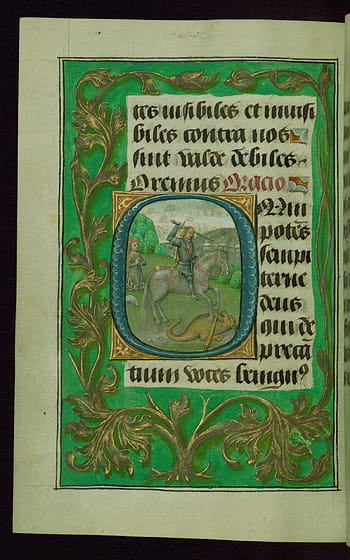 tes uisibiles et inuisi
biles contra nos
sint valde debiles
Oremus Oracio
Mni
potēs
sempi
terne
deus
qui de
precā
tium voces benignꝰ